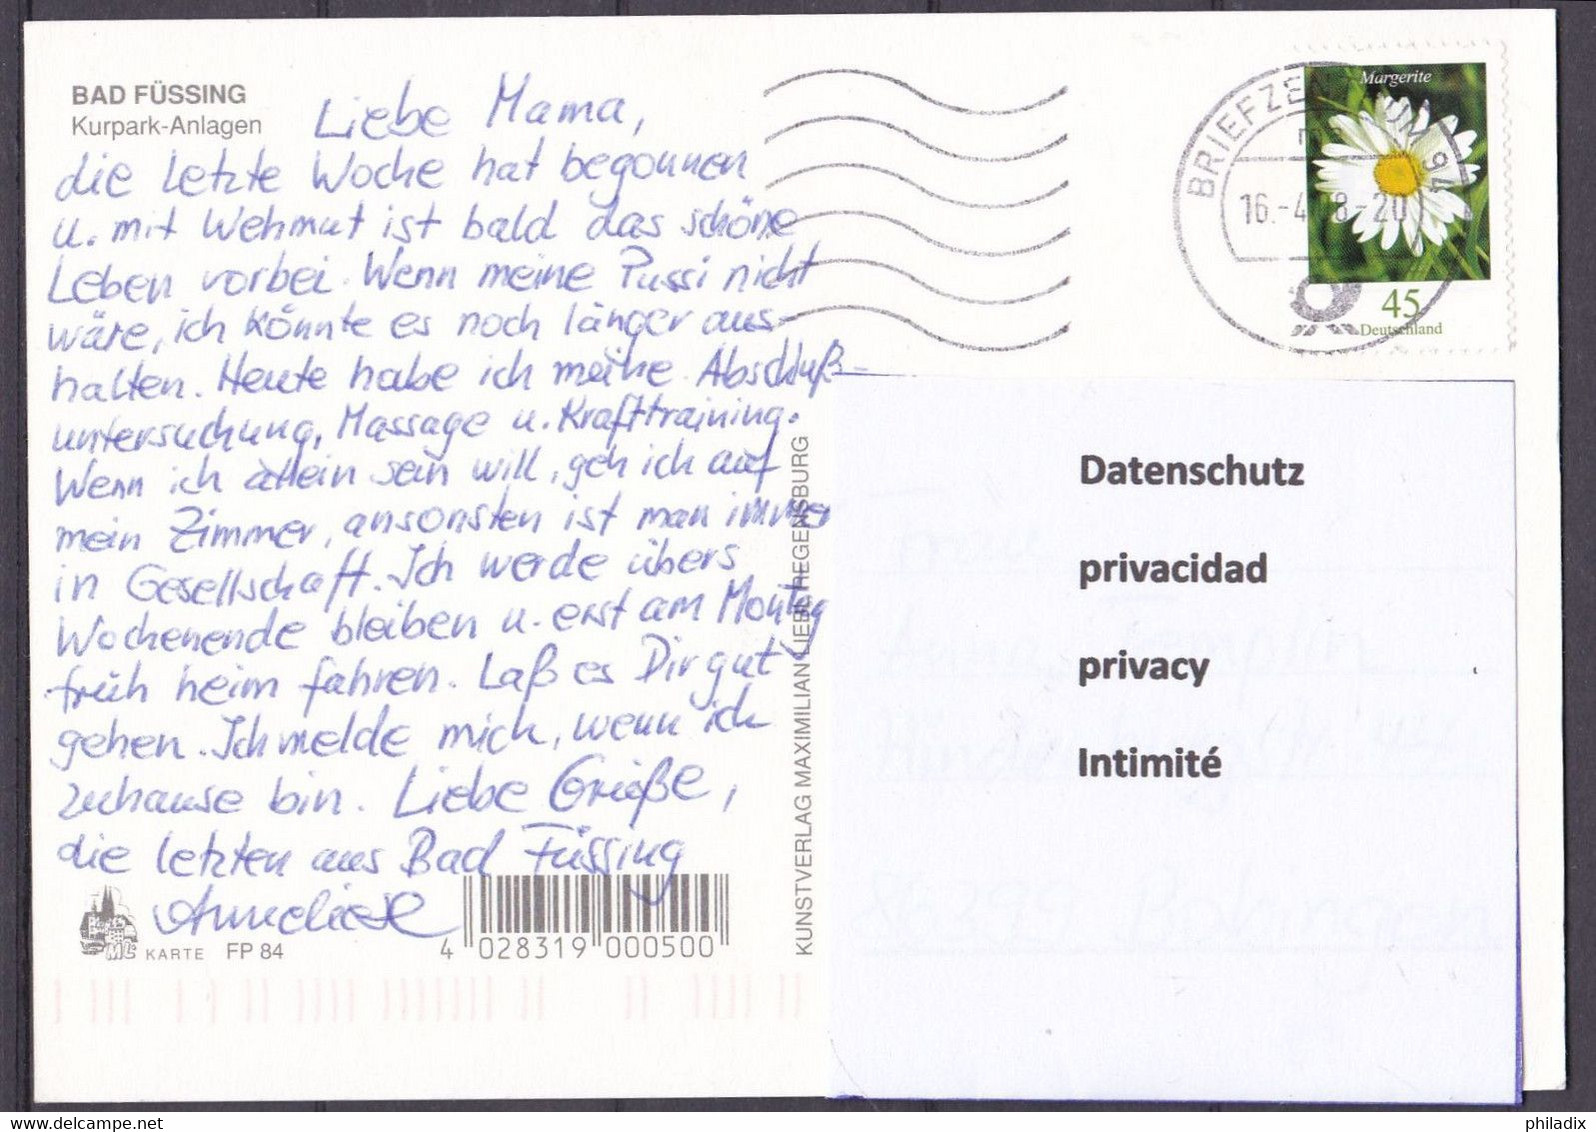 BAD FÜSSING
Kurpark-Anlagen
Liebe Mama,
die letzte Woche hat begonnen
u. mit Wehmut ist bald das schöne
Leben vorbei. Wenn meine Pussi nicht
wäre, ich könnte es noch länger aus-
halten. Heute habe ich meine Abschluß-
untersuchung, Massage u. Krafttraining.
Wenn ich allein sein will, geh ich auf
mein Zimmer, ansonsten ist man immer
in Gesellschaft. Ich werde übers
Wochenende bleiben u. erst am Montag
früh heim fahren. Laß es Dir gut
gehen. Ich melde mich, wenn ich
zuhause bin. Liebe Grüße,
die letzten aus Bad Füssing
Anneliese
KARTE FP 84
4 028319 000500
KUNSTVERLAG MAXIMILIAN LIEBL REGENSBURG
BRIEFZENTRUM 94
16.-4. 8-20
Margerite
45
Deutschland
Datenschutz
privacidad
privacy
Intimité
delcampe.net
philadix